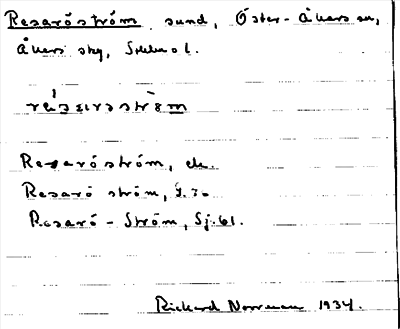 Resaröström, sund, Öster-Åkers sn,
Åkers sky, Sthlms l.
Resaröström, ek.
Resarö ström,
Resarö-Ström, Sj. 61.
Richard Norrman 1934.